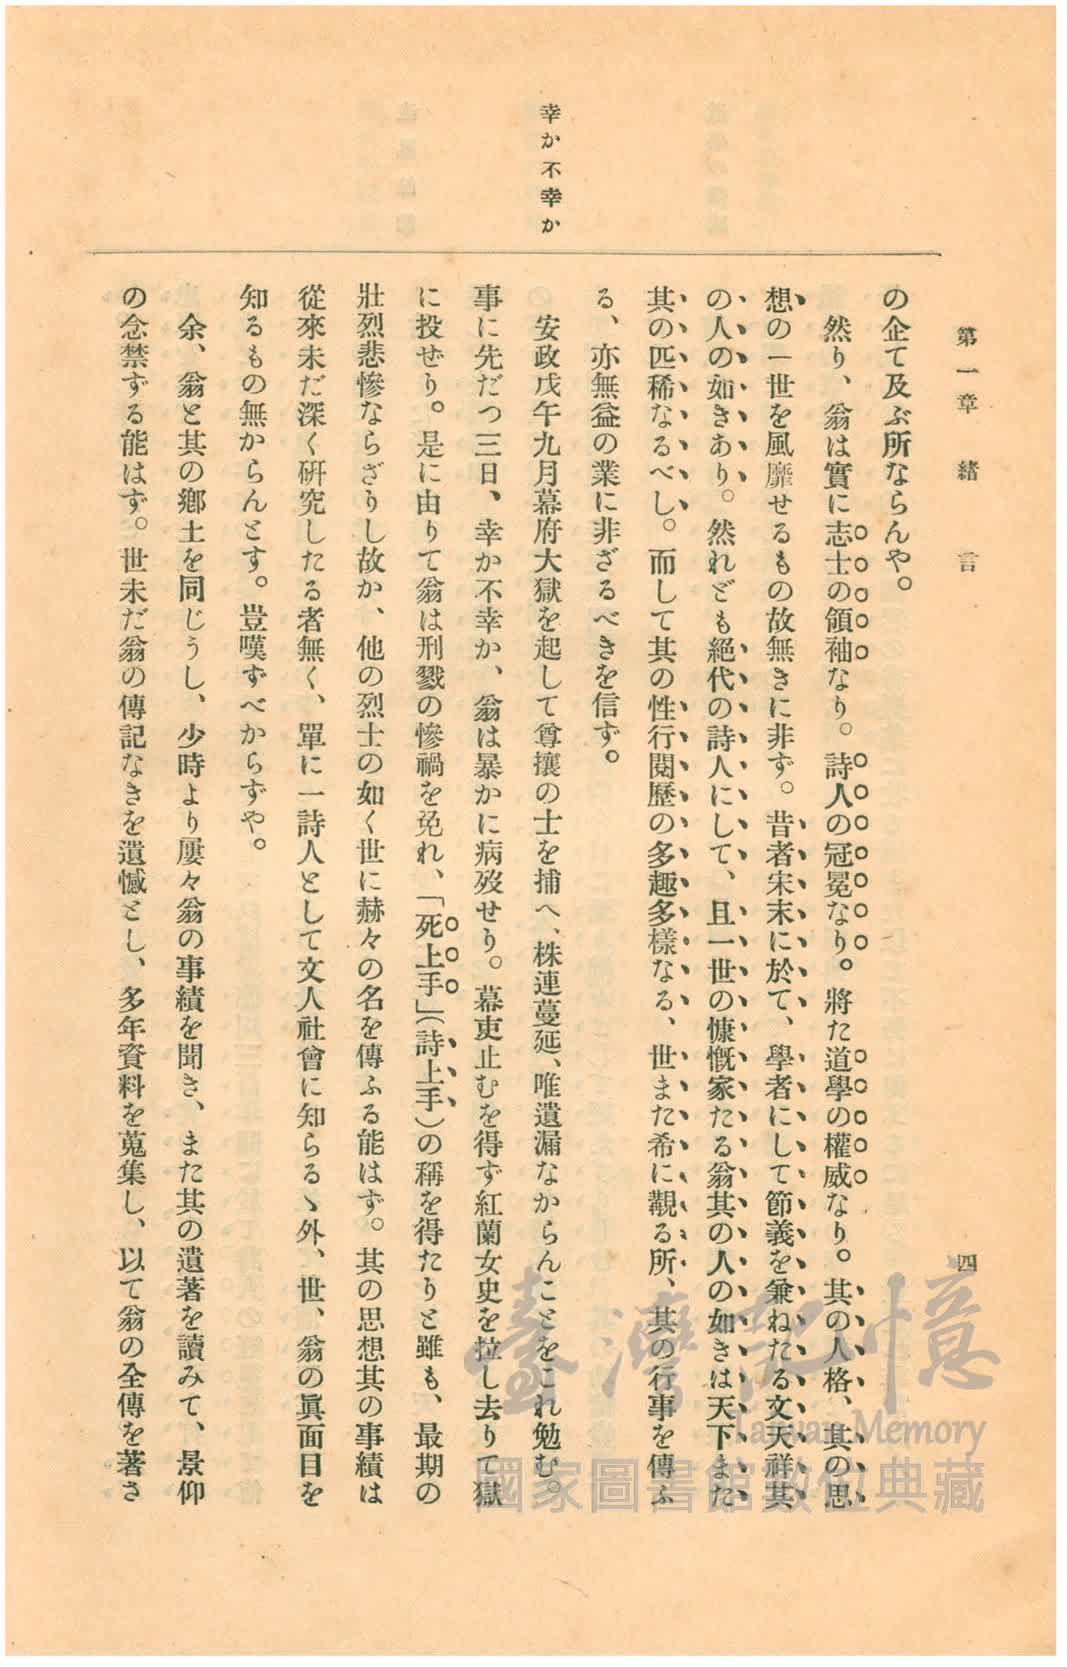 第一章　緒言　四
幸か不幸か
の企て及ぶ所ならんや。
然り、翁は實に志士の領袖なり。詩人の冠冕なり。將た道學の權威なり。其の人格、其の思
想の一世を風靡せるもの故無きに非ず。昔者宋末に於て、學者にして節義を兼ねたる文天祥其
の人の如きあり。然れども絕代の詩人にして、且一世の慷慨家たる翁其の人の如きは天下また
其の匹稀なるべし。而して其の性行閱歷の多趣多樣なる、世また希に觀る所、其の行事を傳ふ
る、亦無益の業に非ざるべきを信ず。
安政戊午九月幕府大獄を起して尊攘の士を捕へ、株連蔓延、唯遺漏なからんことをこれ勉む。
事に先だつ三日、幸か不幸か、翁は暴かに病歿せり。幕吏止むを得ず紅蘭女史を拉し去りて獄
に投ぜり。是に由りて翁は刑戮の慘禍を免れ、「死上手」(詩上手)の稱を得たりと雖も、最期の
壯烈悲慘ならざりし故か、他の烈士の如く世に赫々の名を傳ふる能はず。其の思想其の事績は
從來未だ深く硏究したる者無く、單に一詩人として文人社會に知らるゝ外、世、翁の眞面目を
知るもの無からんとす。豈嘆ずべからずや。
余、翁と其の鄕土を同じうし、少時より屢々翁の事績を聞き、また其の遺著を讀みて、景仰
の念禁ずる能はず。世未だ翁の傳記なきを遺憾とし、多年資料を蒐集し、以て翁の全傳を著さ
臺灣記憶
Taiwan Memory
國家圖書館數位典藏